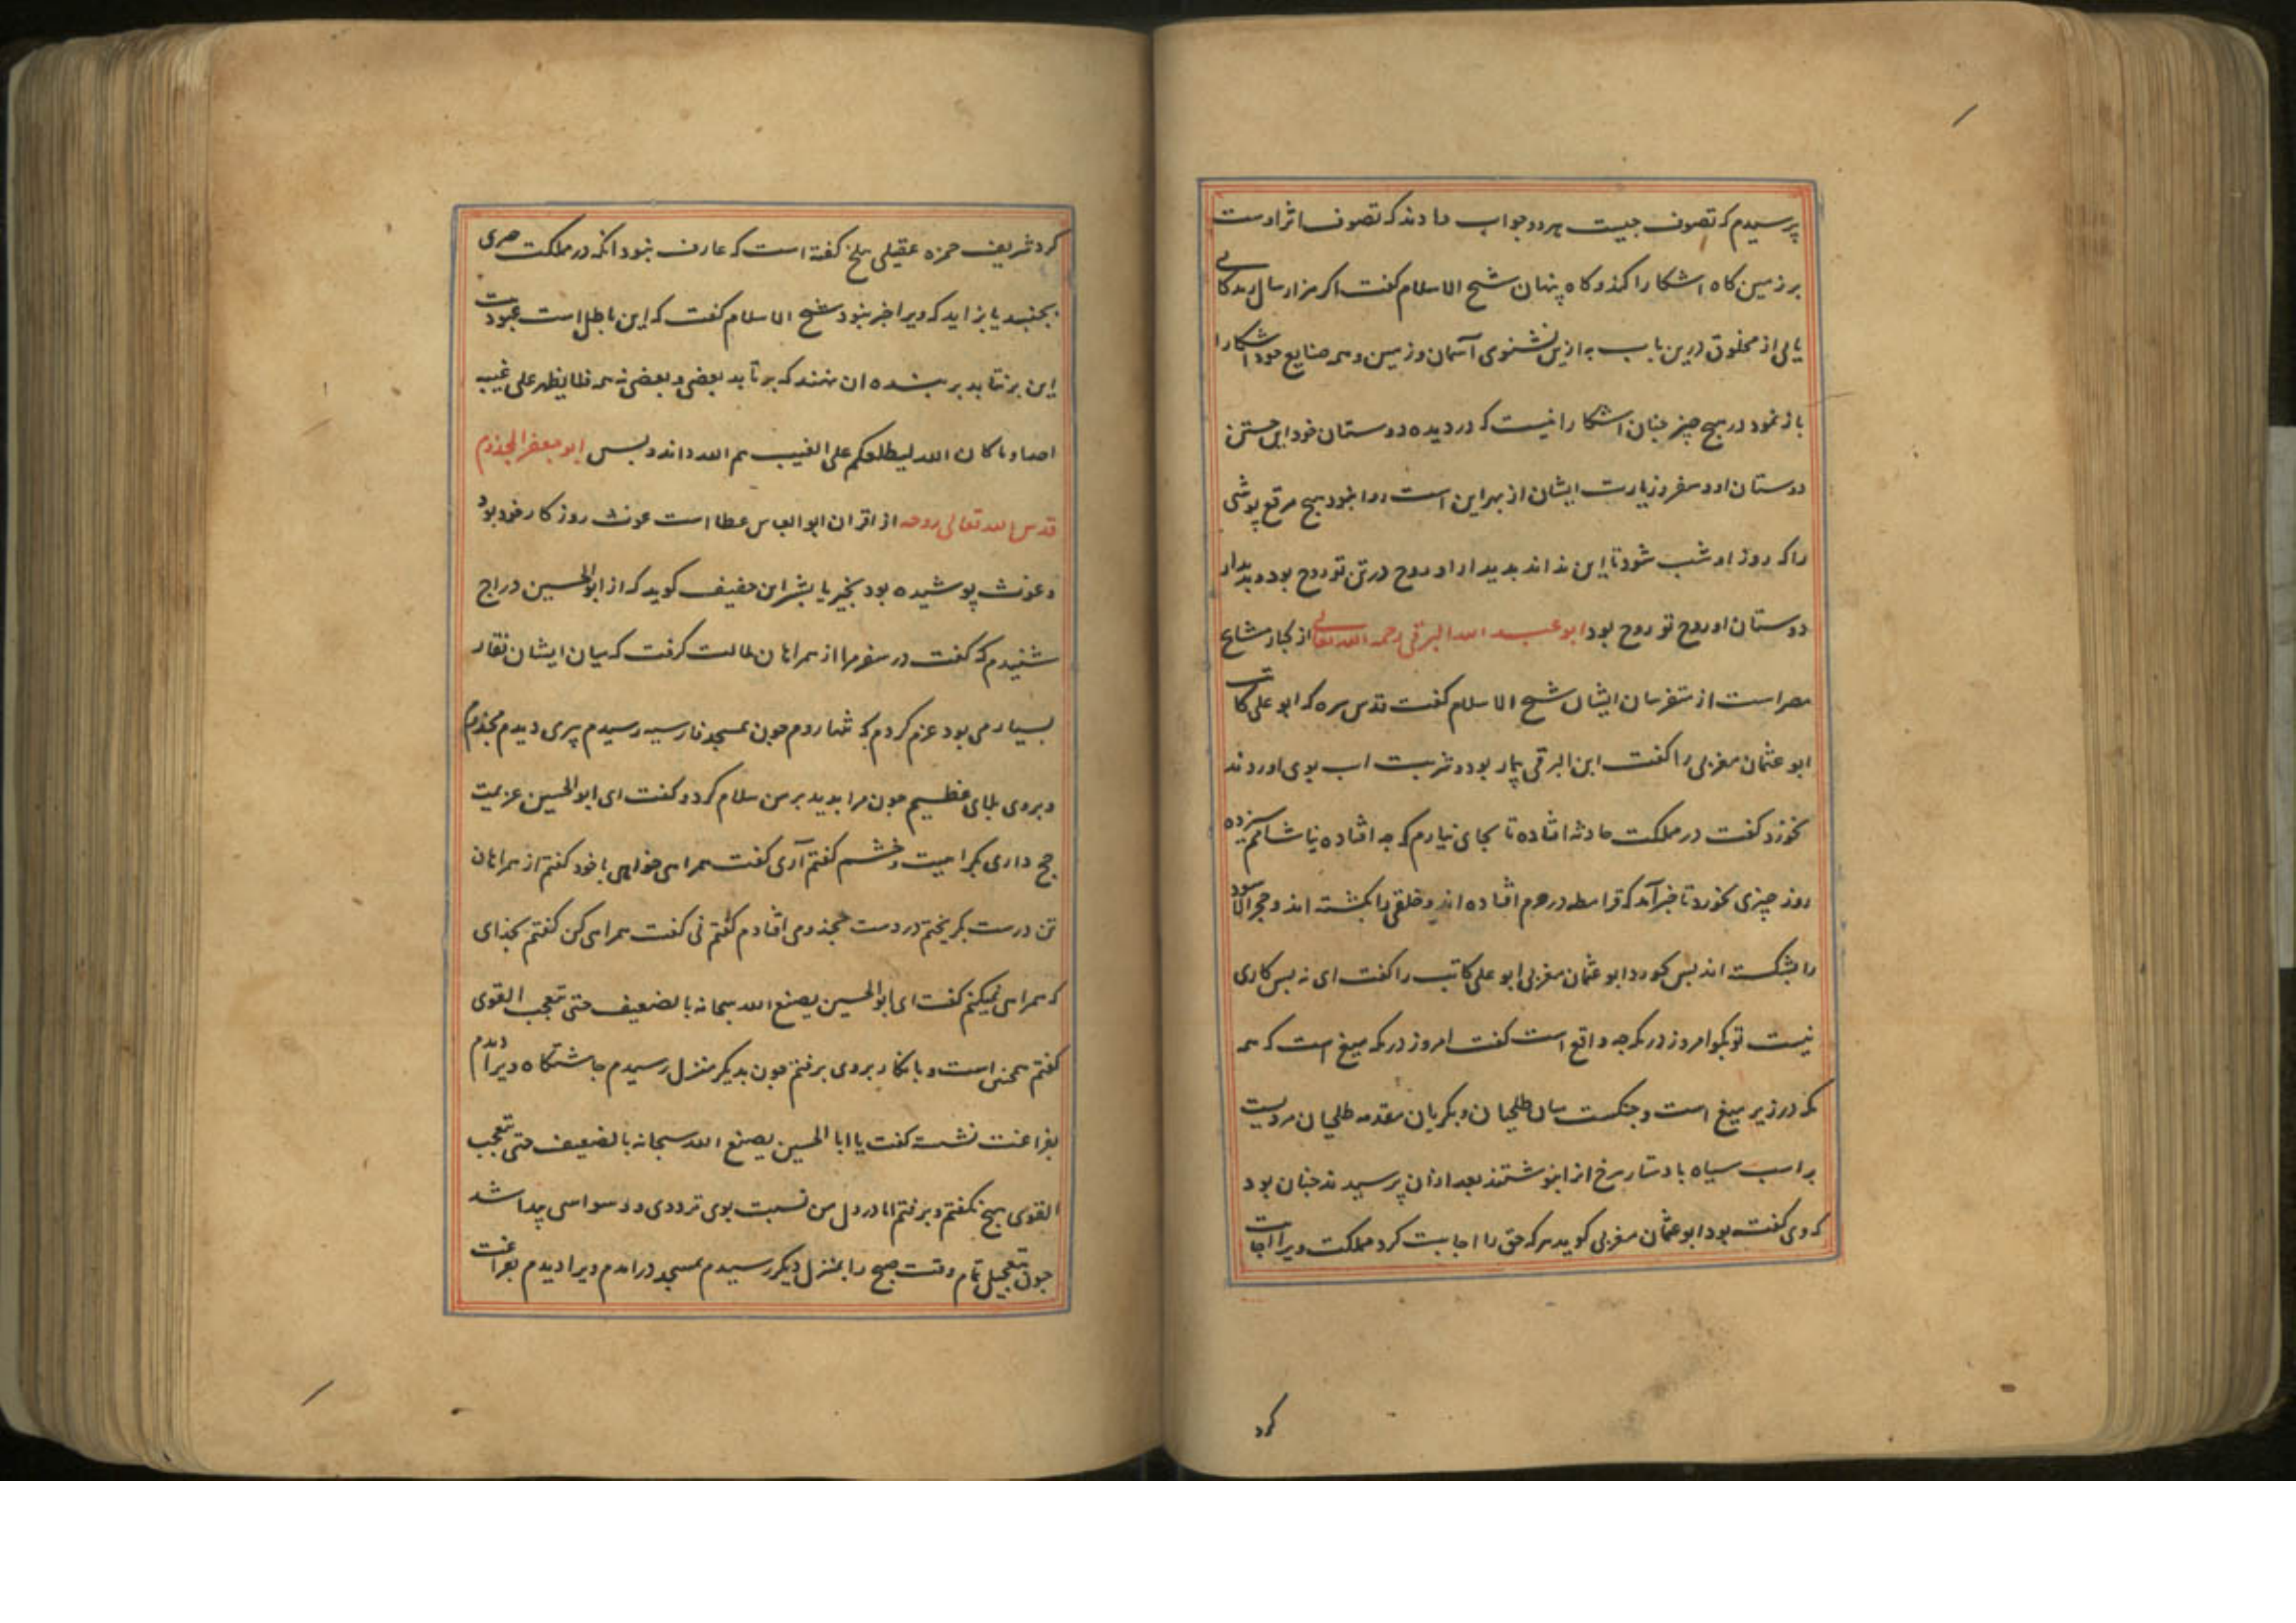 پرسیدم که تصوف جیست هر دو جواب دادند که تصوف اثر اوست
بر زمین کاه اشکارا کند و کاه پنهان شیخ الاسلام کفت اکر هزار سال زندکانی
یابی از مخلوق درین باب به ازین نشنوی آسمان و زمین و همه صنایع خود اشکارا
باز نمود در هیچ چیز جنان اشکارا نیست که در دیده دوستان خود این جستن
دوستان او و سفر و زیارت ایشان از بهر این است روا نبود هیچ مرقع پوشی
را که روز او شب شود تا این نداند بدیدار او روح در تن تو روح بود و بدیدار
دوستان او روح تو روح بود ابو عبد الله البرقی رحمه الله تعالی از کبار مشایخ
مصر است از متفرسان ایشان شیخ الاسلام کفت قدس سره که ابو علی کاتب
ابو عثمان مغربی را کفت ابن البرقی بیمار بود و شربت اب بوی اوردند
نخورد کفت در مملکت حادثه افتاده تا بجای نیارم که جه افتاده نیاشامم سیزده
روز چیزی نخورد تا خبر آمد که قرامطه در حرم افتاده اند و خلقی را بکشته اند و حجر الاسود
را بشکسته اند بس بخورد ابو عثمان مغربی ابو علی کاتب را کفت ای نه بس کاری
نیست تو بکو امروز در مکه جه واقع است کفت امروز در مکه میغ است که همه
مکه در زیر میغ است و جنکست میان طلحیان و بکریان مقدمه طلحیان مردیست
بر اسب سیاه با دستار سرخ انرا بنوشتند بعد ازان پرسیدند جنان بود
که وی کفته بود ابو عثمان مغربی کوید هرکه حق را اجابت کرد مملکت ویرا اجابت
کرد
کرد شریف حمزه عقیلی ببلخ کفته است که عارف نبود انکه در مملکت صری
بجنبد یا بزاید که ویرا خبر نبود شیخ الاسلام کفت که این باطل است عبودیت
این برنتابد بر بنده ان نهند که برتابد بعضی و بعضی نه همه فلا یظهر علی غیبه
احدا و ما کان الله لیطلعکم علی الغیب هم الله داند و بس ابو جعفر المجذوم
قدس الله تعالی روحه از اقران ابو العباس عطا است غوث روز کار خود بود
و غوث پوشیده بود بخیر یا بشر ابن خفیف کوید که از ابو الحسین دراج
شنیدم که کفت در سفر مرا از همراهان ملالت کرفت که میان ایشان نقار
بسیار می بود عزم کردم که تنها روم جون بمسجد قادسیه رسیدم پیری دیدم مجذوم
و بروی بلای عظیم جون مرا بدید بر من سلام کرد و کفت ای ابو الحسین عزیمت
حج داری بکراهیت و خشم کفتم آری کفت همراهی خواهی با خود کفتم از همراهان
تن درست بکریختم در دست مجذومی افتادم کفتم نی کفت همراهی کن کفتم بخدای
که همراهی نمیکنم کفت ای ابو الحسین یصنع الله سبحانه بالضعیف حتی یتعجب القوی
کفتم همجنین است و بانکار بروی برفتم جون بدیکر منزل رسیدم جاشتکاه ویرا دیدم
بفراغت نشسته کفت یا ابا الحسین یصنع الله سبحانه بالضعیف حتی یتعجب
القوی هیچ نکفتم و برفتم اما در دل من نسبت بوی ترددی و وسواسی پیدا شد
جون بتعجیل تمام وقت صبح را بمنزل دیکر رسیدم بمسجد درامدم ویرا دیدم بفراغت